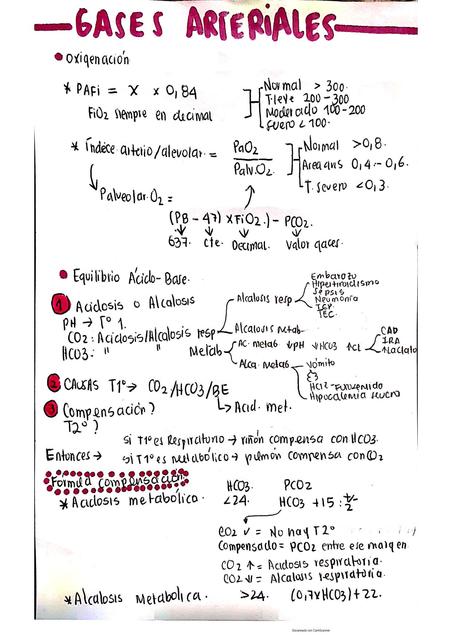 GASES ARTERIALES
Oxigenación
* PAFi = X x 0,84
FiO2 siempre en decimal
Normal > 300.
T. leve 200 - 300
Moderado 100 - 200
Severo < 100.
* Índece arterio/alevolar. = PaO2 / Palv.O2.
Normal > 0,8.
Áreagris 0,4 - 0,6.
T. severo < 0,3.
Palveolar.O2 =
(PB - 47) x FiO2.) - PCO2.
637. cte. Decimal. Valor gases.
Equilibrio Ácido-Base.
1 Acidosis o Alcalosis
PH → T° 1.
CO2: Acidosis/Alcalosis resp
HCO3: " " Metab
Alcalosis resp
Embarazo
Hipertiroidismo
Sepsis
Neumonía
TEC.
Alcalosis metab.
Ac. metab ↓PH ↓HCO3 ↑CL
CAD
IRA
↑Lactato
Alca. metab
Vómito
Hipocalemia severa
2 CAUSAS T1° → CO2/HCO3/BE
↳ Acid. met.
3 Compensación?
T2°?
Entonces →
si T1° es Respiratorio → riñón compensa con HCO3.
si T1° es metabólico → pulmón compensa con CO2
Formula compensación
* Acidosis metabólica.
HCO3. PCO2
<24. HCO3 + 15 : +/-
CO2 ↓ = No hay T2°
Compensado = PCO2 entre ese margen.
CO2 ↑ = Acidosis respiratoria.
CO2 ↓↓ = Alcalosis respiratoria.
* Alcalosis Metabolica. >24. (0,7xHCO3) + 22.
Escaneado con CamScanner